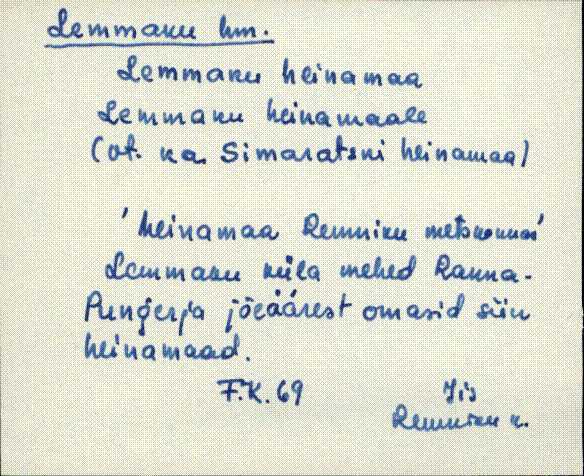 Lemmaku hm.
Lemmaku heinamaa
Lemmaku heinamaale
(vt. ka Simaratski heinamaa)
'heinamaa Remniku metskonnas'
Lemmaku küla mehed Ranna-
Pungerja jõeäärest omasid siin
heinamaad.
F.K. 69
Jis
Remniku k.